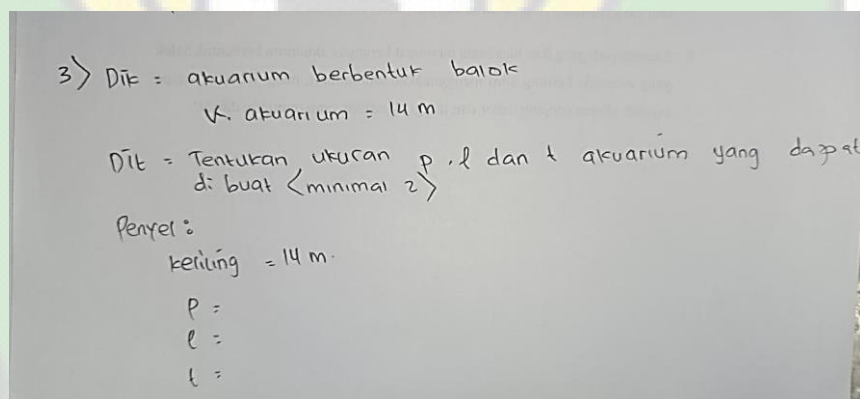 3) Dik = akuarium berbentuk balok
K. akuarium = 14 m
Dit = Tentukan ukuran p, l dan t akuarium yang dapat
di buat <minimal 2>
Penyel :
keliling = 14 m.
P =
l =
t =